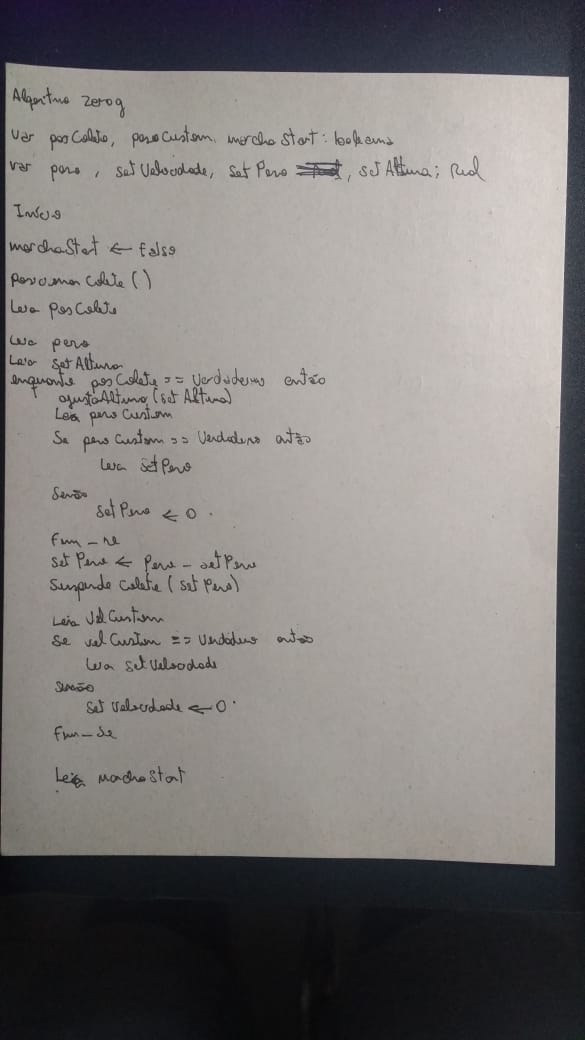 Algoritmo Zerog
Var posColete, pesoCustom, marchaStart: booleano
var peso, setVelocidade, setPeso, setAltura; Real
Início
marchaStart ← false
Posicionar Colete ()
Leia PosColete
Leia peso
Leia setAltura
enquanto posColete == Verdadeiro então
ajustaAltura (setAltura)
Leia pesoCustom
Se pesoCustom == Verdadeiro então
Leia setPeso
Senão
setPeso ← 0.
Fim-se
setPeso ← Peso - setPeso
Suspende colete (setPeso)
Leia VelCustom
Se velCustom == Verdadeiro então
Leia setVelocidade
Senão
Set Velocidade ← 0.
Fim-se
Leia marchaStart